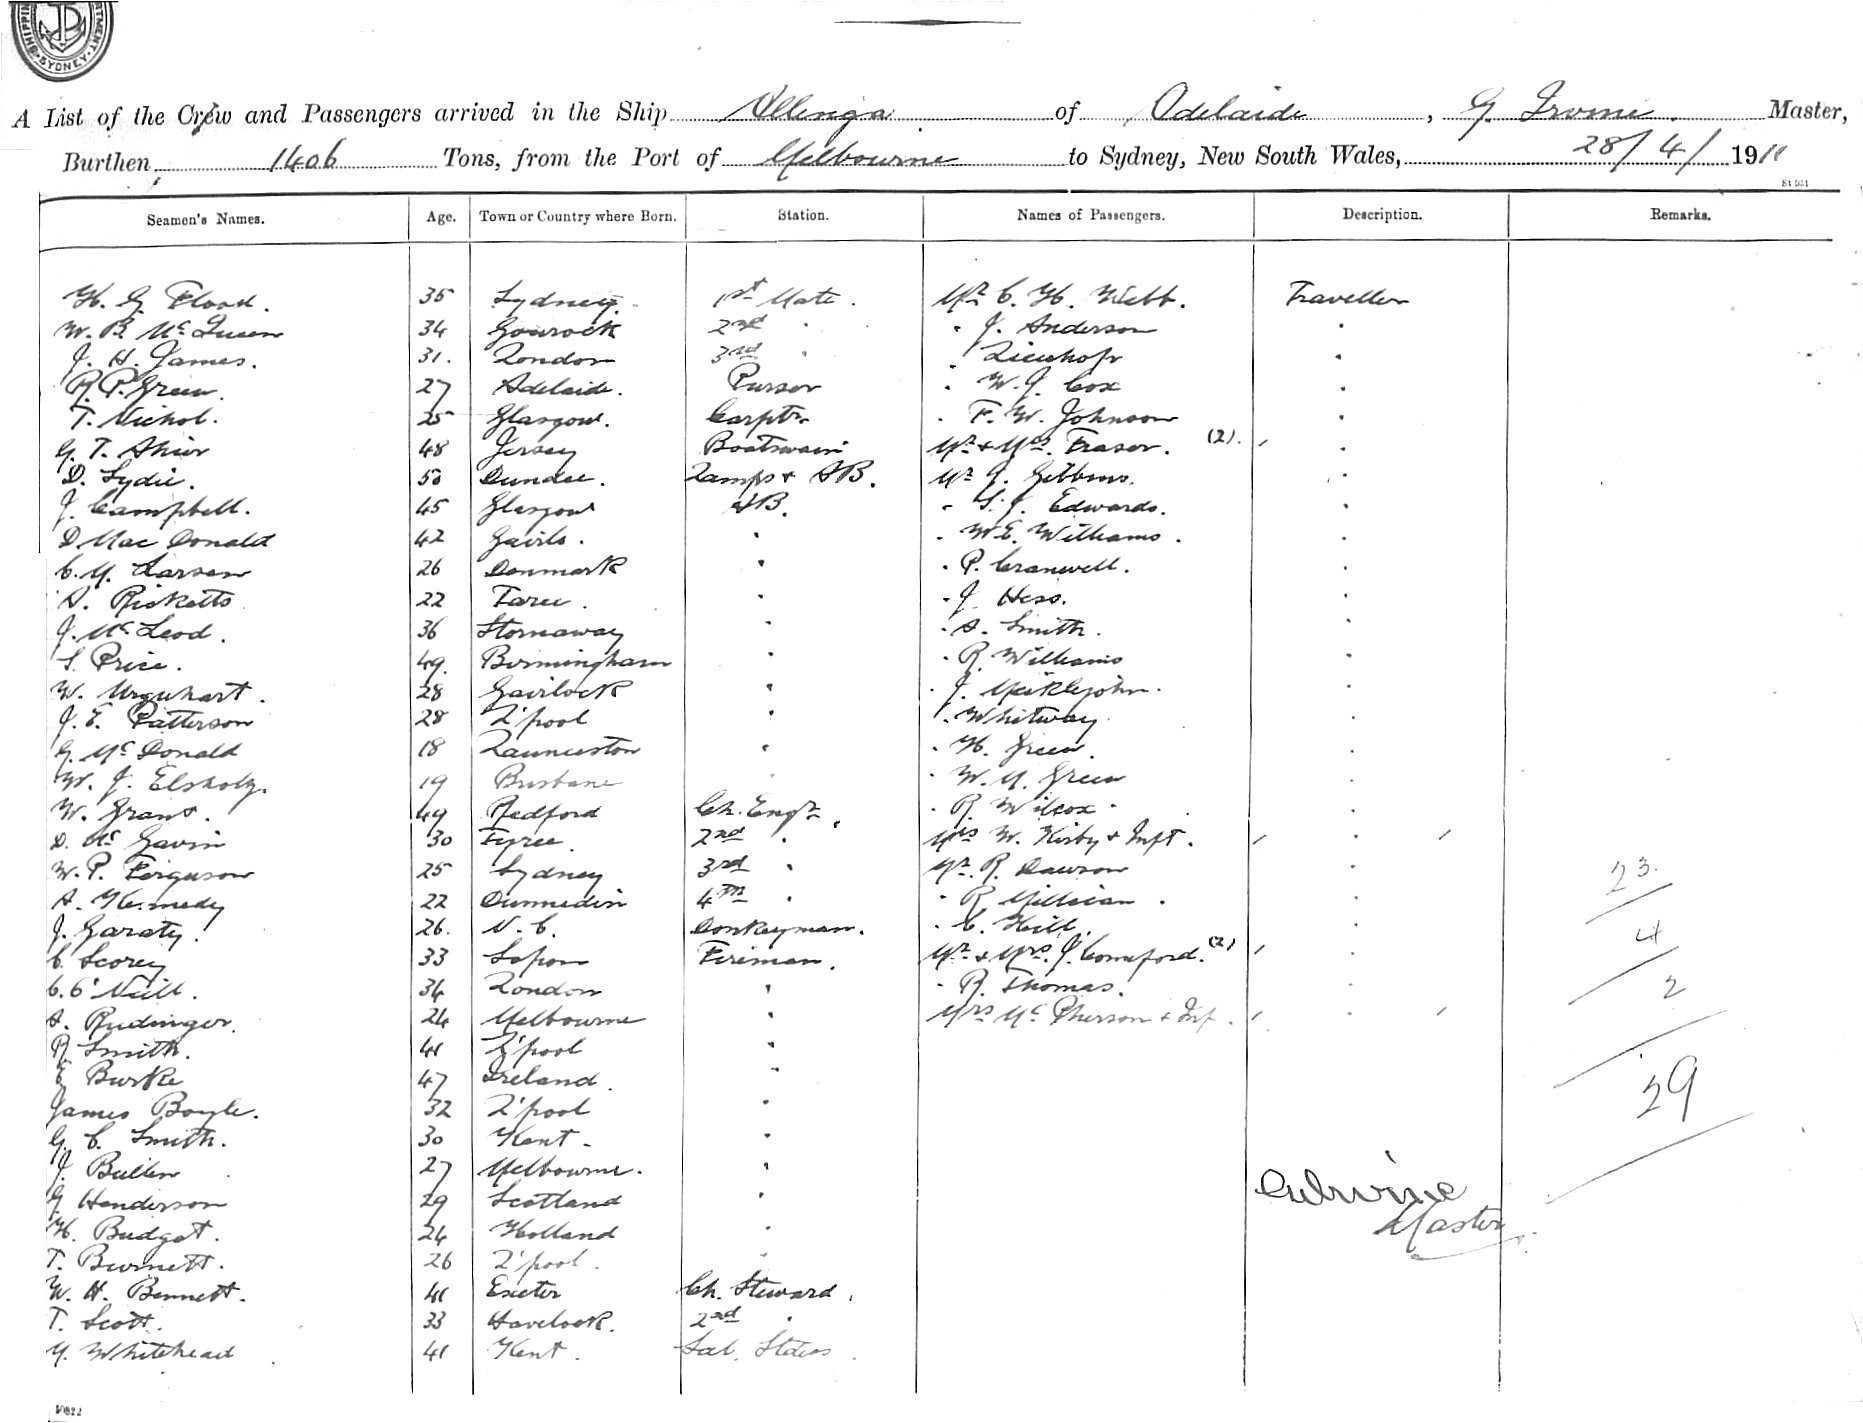 SHIPPING DEPARTMENT SYDNEY
A List of the Crew and Passengers arrived in the Ship Allinga of Adelaide, G. Irvine Master,
Burthen 1406 Tons, from the Port of Melbourne to Sydney, New South Wales, 28/4/1911
St 051
Seamen's Names. Age. Town or Country where Born. Station. Names of Passengers. Description. Remarks.
H. G. Flood. 35 Sydney. 1st Mate. Mr C. H. Webb. Traveller
W. B. McQueen 34 Gourock 2nd " " J. Anderson "
J. H. James. 31. London 3rd " " "
R. P. Green. 27 Adelaide. Purser " W. J. Cox "
T. Nichol. 25 Glasgow. Carptr. " F. W. Johnson "
G. T. 48 Jersey Boatswain Mr & Mrs. Fraser. (2). / "
D. Lydie. 50 Dundee. Lamps & AB. Mr J. Gibbins. "
J. Campbell. 45 Glasgow AB. " S. J. Edwards. "
D MacDonald 42 " " W. E. Williams. "
C. M. Larsen 26 Denmark " " P. Cranwell. "
A. Ricketts 22 Taree. " " J Hess. "
J. McLeod. 36 Stornaway " " A. Smith. "
S. Price. 49. Birmingham " " R. Williams "
W. Urquhart. 28 Gairlock " " J. Meiklejohn. "
J. E. Patterson 28 L'pool " " Whitway. "
G. McDonald 18 Launceston " " H. Green. "
W. J. Elsholz. 19 Brisbane " " W. M. Green "
W. Grant. 49 Redford Ch. Engr. " R. Wilcox. "
D. McGavin 30 Tyree. 2nd " Mrs W. Kirby & Inft. / " /
W. P. Ferguson 25 Sydney 3rd " Mr. R. Dawson " 23.
A. Kennedy 22 Dunnedin 4th " " R. "
J. Garaty. 26. N. C. Donkeyman. " C. Hill. " 4
C. Scorey 33 Fireman. Mr & Mrs. J. Comeford. (2) / "
C. O'Neill. 34 London " " R. Thomas. " 2
A. Rudinger. 24 Melbourne " Mrs McPherson & Inf. / " /
R Smith. 41 L'pool "
E Burke 47 Ireland. " 29
James Boyle. 32 L'pool "
G. C. Smith. 30 Kent. "
J. Bullen 27 Melbourne. "
G Henderson 29 Scotland "
H. Budget. 24 Holland "
T. Burnett. 26 L'pool. "
W. H. Bennett. 41 Exeter Ch. Steward.
T. Scott. 33 Havelock. 2nd "
M. Whitehead 41 Kent. Sal. Stdess.
Irvine
Master